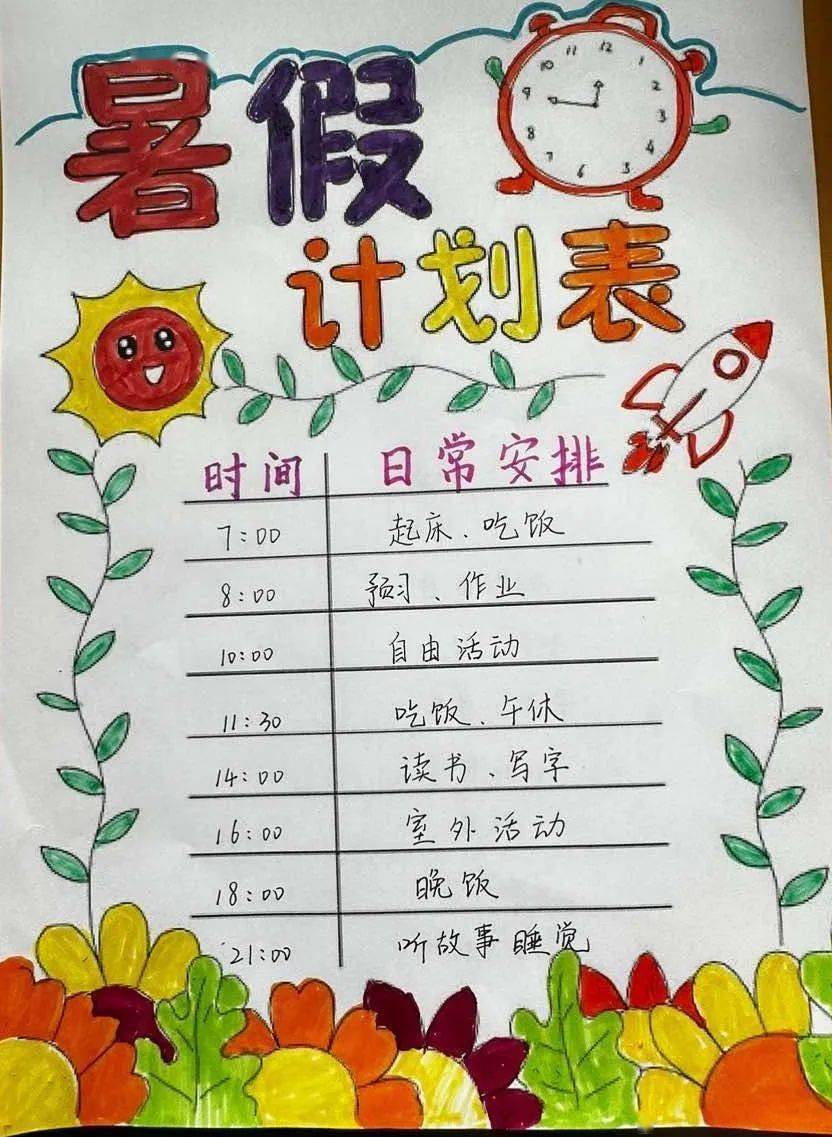 暑假
计划表
12
11
1
10
2
9
3
8
4
7
5
6
时间 日常安排
7:00 起床、吃饭
8:00 预习、作业
10:00 自由活动
11:30 吃饭、午休
14:00 读书、写字
16:00 室外活动
18:00 晚饭
21:00 听故事睡觉